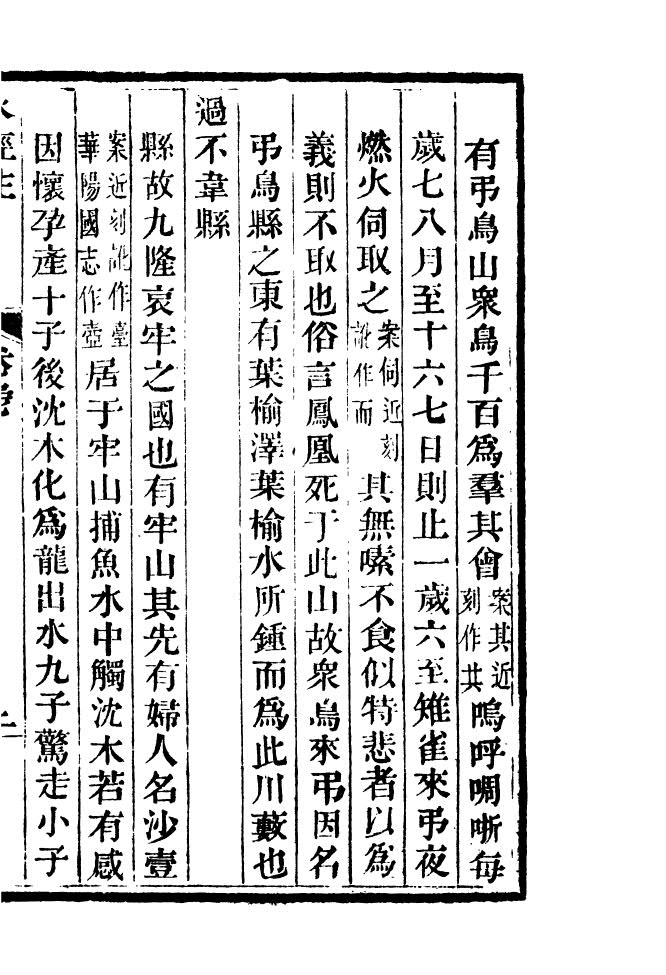 有弔鳥山衆鳥千百爲羣其曾案其近刻作共嗚呼啁哳每
歲七八月至十六七日則止一歲六至雉雀來弔夜
燃火伺取之案伺近刻訛作而其無嗉不食似特悲者以爲
義則不取也俗言鳳凰死于此山故衆鳥來弔因名
弔鳥縣之東有葉榆澤葉榆水所鍾而爲此川藪也
過不韋縣
縣故九隆哀牢之國也有牢山其先有婦人名沙壹
案近刻訛作臺華陽國志作壺居于牢山捕魚水中觸沈木若有感
因懷孕產十子後沈木化爲龍出水九子驚走小子
水經注